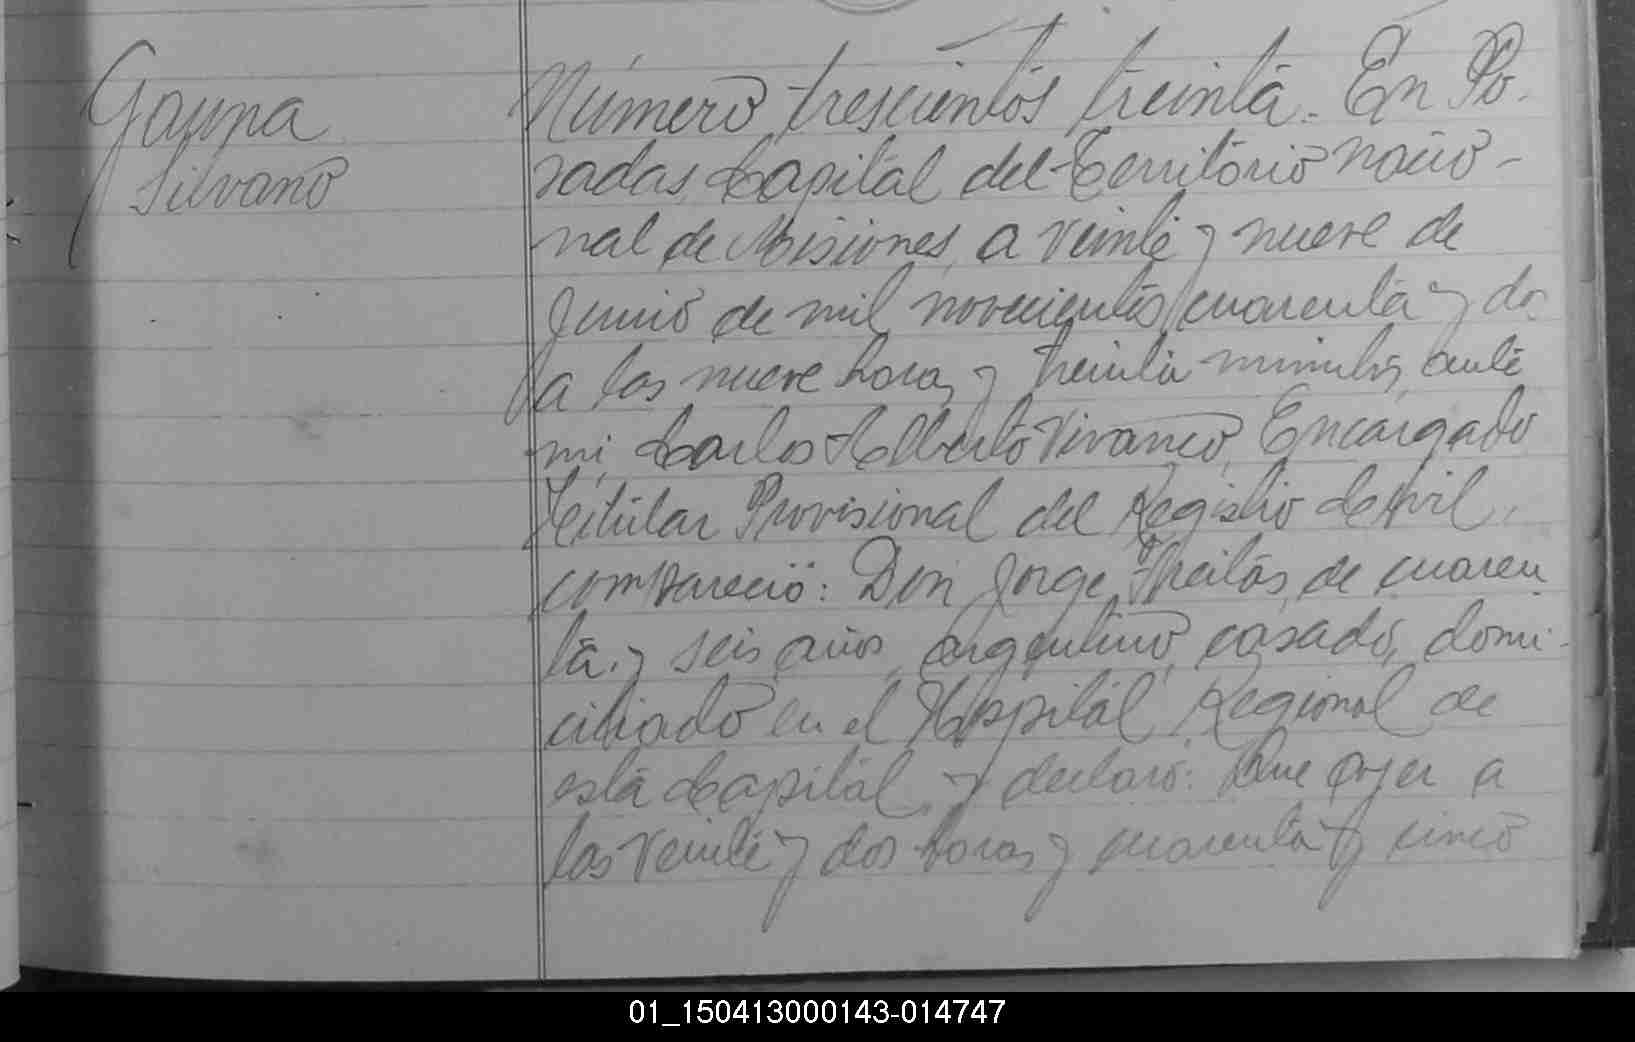 Gauna
Silvano
Número trescientos treinta. En Po-
sadas, Capital del Territorio nacio-
nal de Misiones, a veinte y nueve de
Junio de mil novecientos cuarenta y dos
a las nueve horas y treinta minutos, ante
mi, Carlos Alberto Vivanco, Encargado
Titular Provisional del Registro Civil,
compareció: Don Jorge Freitas, de cuaren
ta y seis años, argentino, casado, domi-
ciliado en el Hospital Regional de
esta Capital, y declaró: Que ayer a
las veinte y dos horas y cuarenta y cinco
01_150413000143-014747